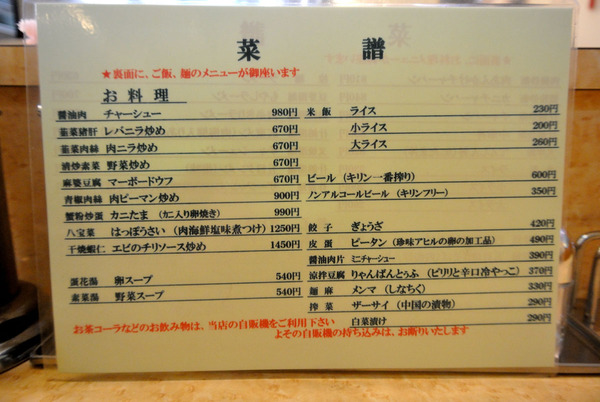 菜 譜
★裏面に、ご飯、麺のメニューが御座います
お料理
醤油肉 チャーシュー 980円
韮菜猪肝 レバニラ炒め 670円
韮菜肉絲 肉ニラ炒め 670円
清炒素菜 野菜炒め 670円
麻婆豆腐 マーボードウフ 670円
青椒肉絲 肉ピーマン炒め 900円
蟹粉炒蛋 カニたま (カニ入り卵焼き) 990円
八宝菜 はっぽうさい (肉海鮮塩味煮つけ) 1250円
干焼蝦仁 エビのチリソース炒め 1450円
蛋花湯 卵スープ 540円
素菜湯 野菜スープ 540円
米飯 ライス 230円
小ライス 200円
大ライス 260円
ビール (キリン一番搾り) 600円
ノンアルコールビール (キリンフリー) 350円
餃子 ぎょうざ 420円
皮蛋 ピータン (珍味アヒルの卵の加工品) 490円
醤油肉片 ミニチャーシュー 390円
涼拌豆腐 りゃんばんとぅふ (ピリリと辛口冷やっこ) 370円
麺麻 メンマ (しなちく) 330円
搾菜 ザーサイ (中国の漬物) 290円
白菜漬け 290円
お茶コーラなどのお飲み物は、当店の自販機をご利用下さい
よその自販機の持ち込みは、お断りいたします